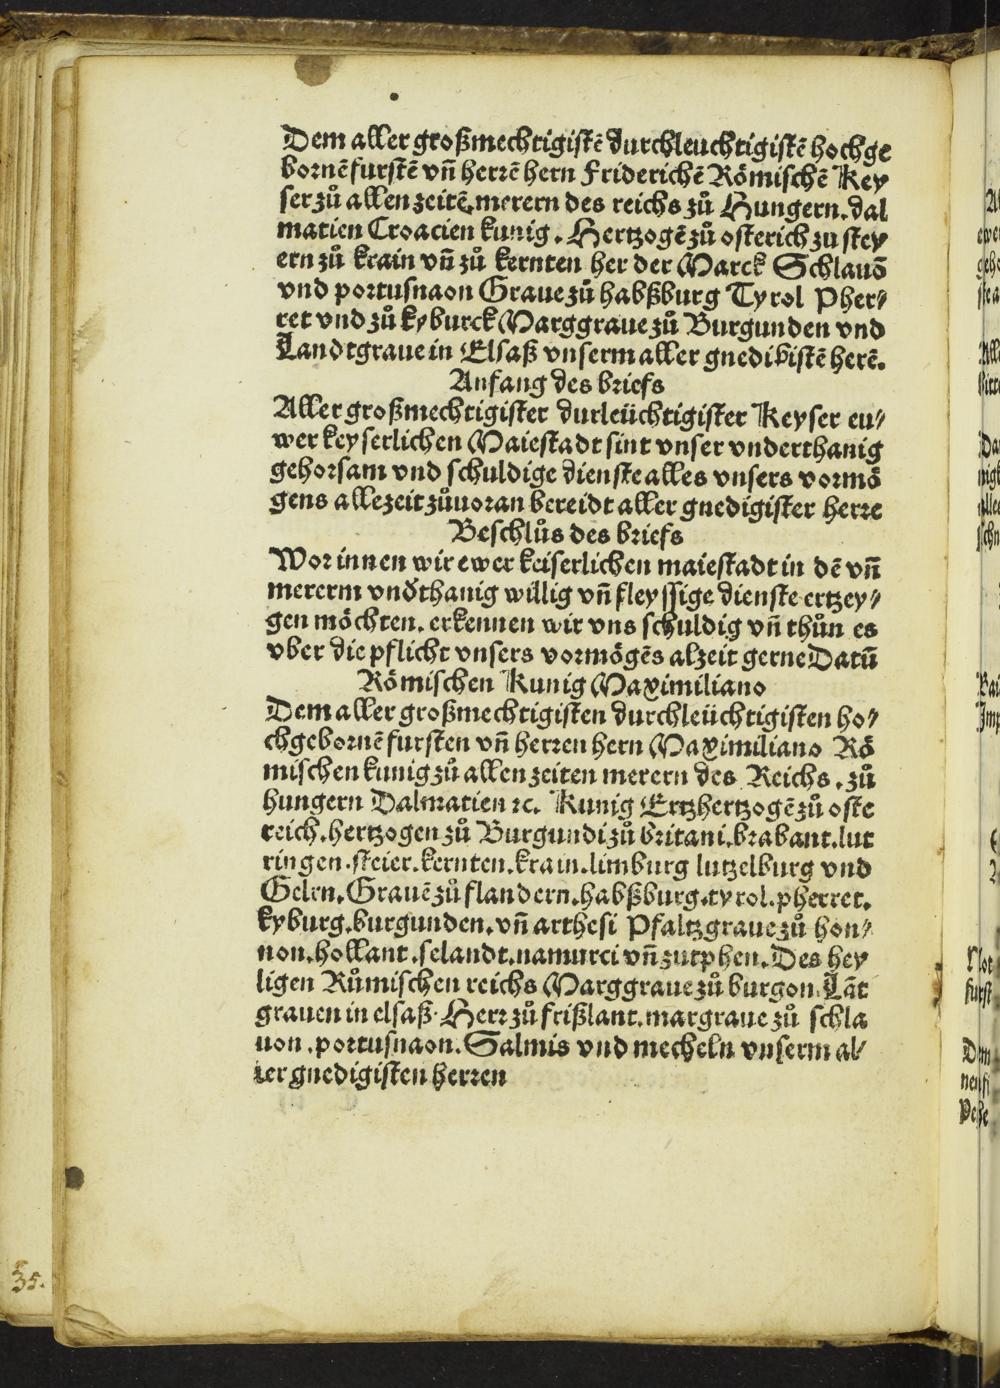 Dem aller großmechtigistē durchleuchtigistē hochge
bornē furstē vn̄ herrē hern Friderichē Römischē Key
ser zů allen zeitē, merern des reichs zů Hungern. dal
matien Croacien kunig. Hertzogē zů osterich zu stey
ern zů krain vn̄ zů kernten her der Marck Schlauō
vnd portusnaon Graue zů habßburg Tyrol Pher⸗
ret vnd zů kyburck Marggraue zů Burgunden vnd
Landtgraue in Elsaß vnserm aller gnedikistē herē.
Anfang des briefs
Aller großmechtigister durleüchtigister Keyser eu⸗
wer keyserlichen Maiestadt sint vnser vnderthanig
gehorsam vnd schuldige dienste alles vnsers vormö
gens allezeit zůuoran bereidt aller gnedigister herre
Beschlůs des briefs
Wor innen wir ewer keiserlichen maiestadt in dē vn̄
mererm vnd̾thanig willig vn̄ fleyssige dienste ertzey⸗
gen möchten. erkennen wir vns schuldig vn̄ thůn es
vber die pflicht vnsers vormögēs alzeit gerne Datū
Römischen Kunig Maximiliano
Dem aller großmechtigisten durchleüchtigisten ho⸗
chgebornē fursten vn̄ herren hern Maximiliano Rö
mischen kunig zů allen zeiten merern des Reichs. zů
hungern Dalmatien ⁊c. Kunig Ertzhertzogē zů oste
reich. hertzogen zů Burgundi zů britani. brabant. lut
ringen. steier. kernten. krain. limburg lutzelburg vnd
Gelrn. Grauē zů flandern. habßburg. tyrol. pherret.
kyburg. burgunden. vn̄ arthesi Pfaltzgraue zů hon⸗
non. hollant. selandt. namurci vn̄ zutphen. Des hey
ligen Růmischen reichs Marggraue zů burgon. Lāt
grauen in elsaß. Herr zů frißlant. margraue zů schla
uon. portusnaon. Salmis vnd mecheln vnserm al⸗
ler gnedigisten herren
35.